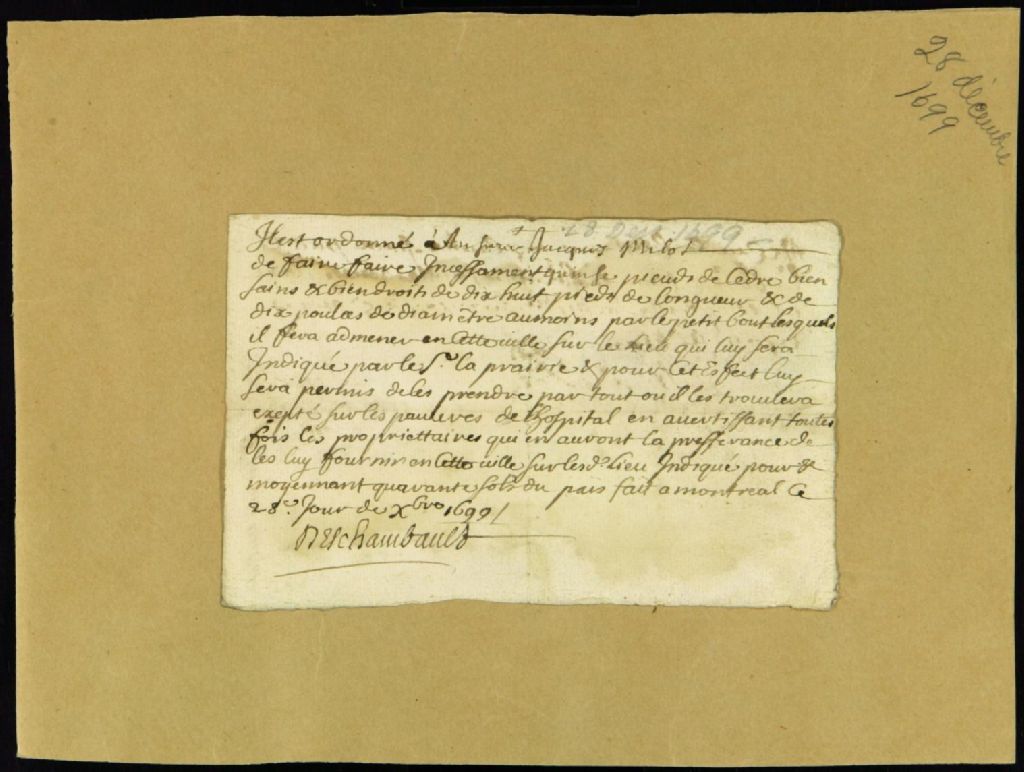 28 décembre
1699
28 Decr 1699
Il est ordonné à Jacques Milot
de faire faire Incessament quinse pieuds de Cedre bien
sains & bien droits de dix huit pieds de longueur & de
dix poulces de diamettre au moins par le petit bout lesquels
il fera admener en Cette ville sur le Lieu qui luy sera
Indiqué par le Sr. la prairie & pour Cet Effect luy
sera permis de les prendre par tout ou il les trouvera
exepté sur les pauvres de l'hospital en avertissant toutes
fois les propriettaires qui en auront la prefferance de
les luy fournir en Cette ville sur lesd. Lieu Indiqué pour &
moyennant quarante sols du païs fait a montreal Ce
28e. Jour de Xbre 1699 /
DEschambault